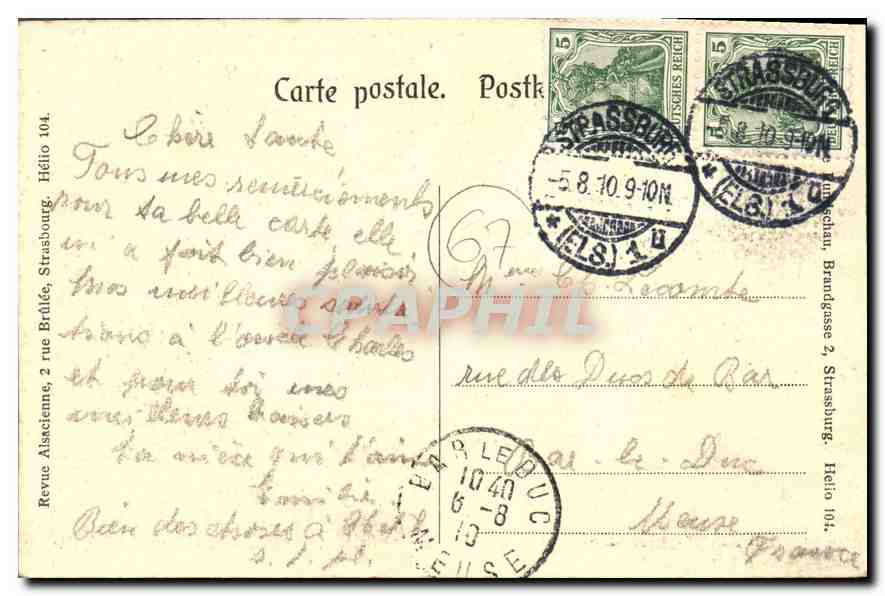 Carte postale. Postk
5
DEUTSCHES REICH
5
REICH
STRASSBURG
-5.8.10.9-10N.
* (ELS.) 1 u
STRASSBURG
5.8.10.9-10N.
* (ELS.) 1 u
Chère Tante
Tous mes remerciements
pour ta belle carte, elle
m'a fait bien plaisir
Mes meilleures
à l'oncle Charles
et pour toi mes
meilleurs baisers
Ta nièce qui t'aime
Emilie
Bien des choses à
s. t. pl.
67
Mme Ch. Lecomte
rue des Ducs de Bar
Bar-le-Duc
Meuse
France
BAR LE DUC
10 40
6 -8
10
MEUSE
CPAPHIL
Revue Alsacienne, 2 rue Brûlée, Strasbourg. Hélio 104.
Rundschau, Brandgasse 2, Strassburg. Helio 104.